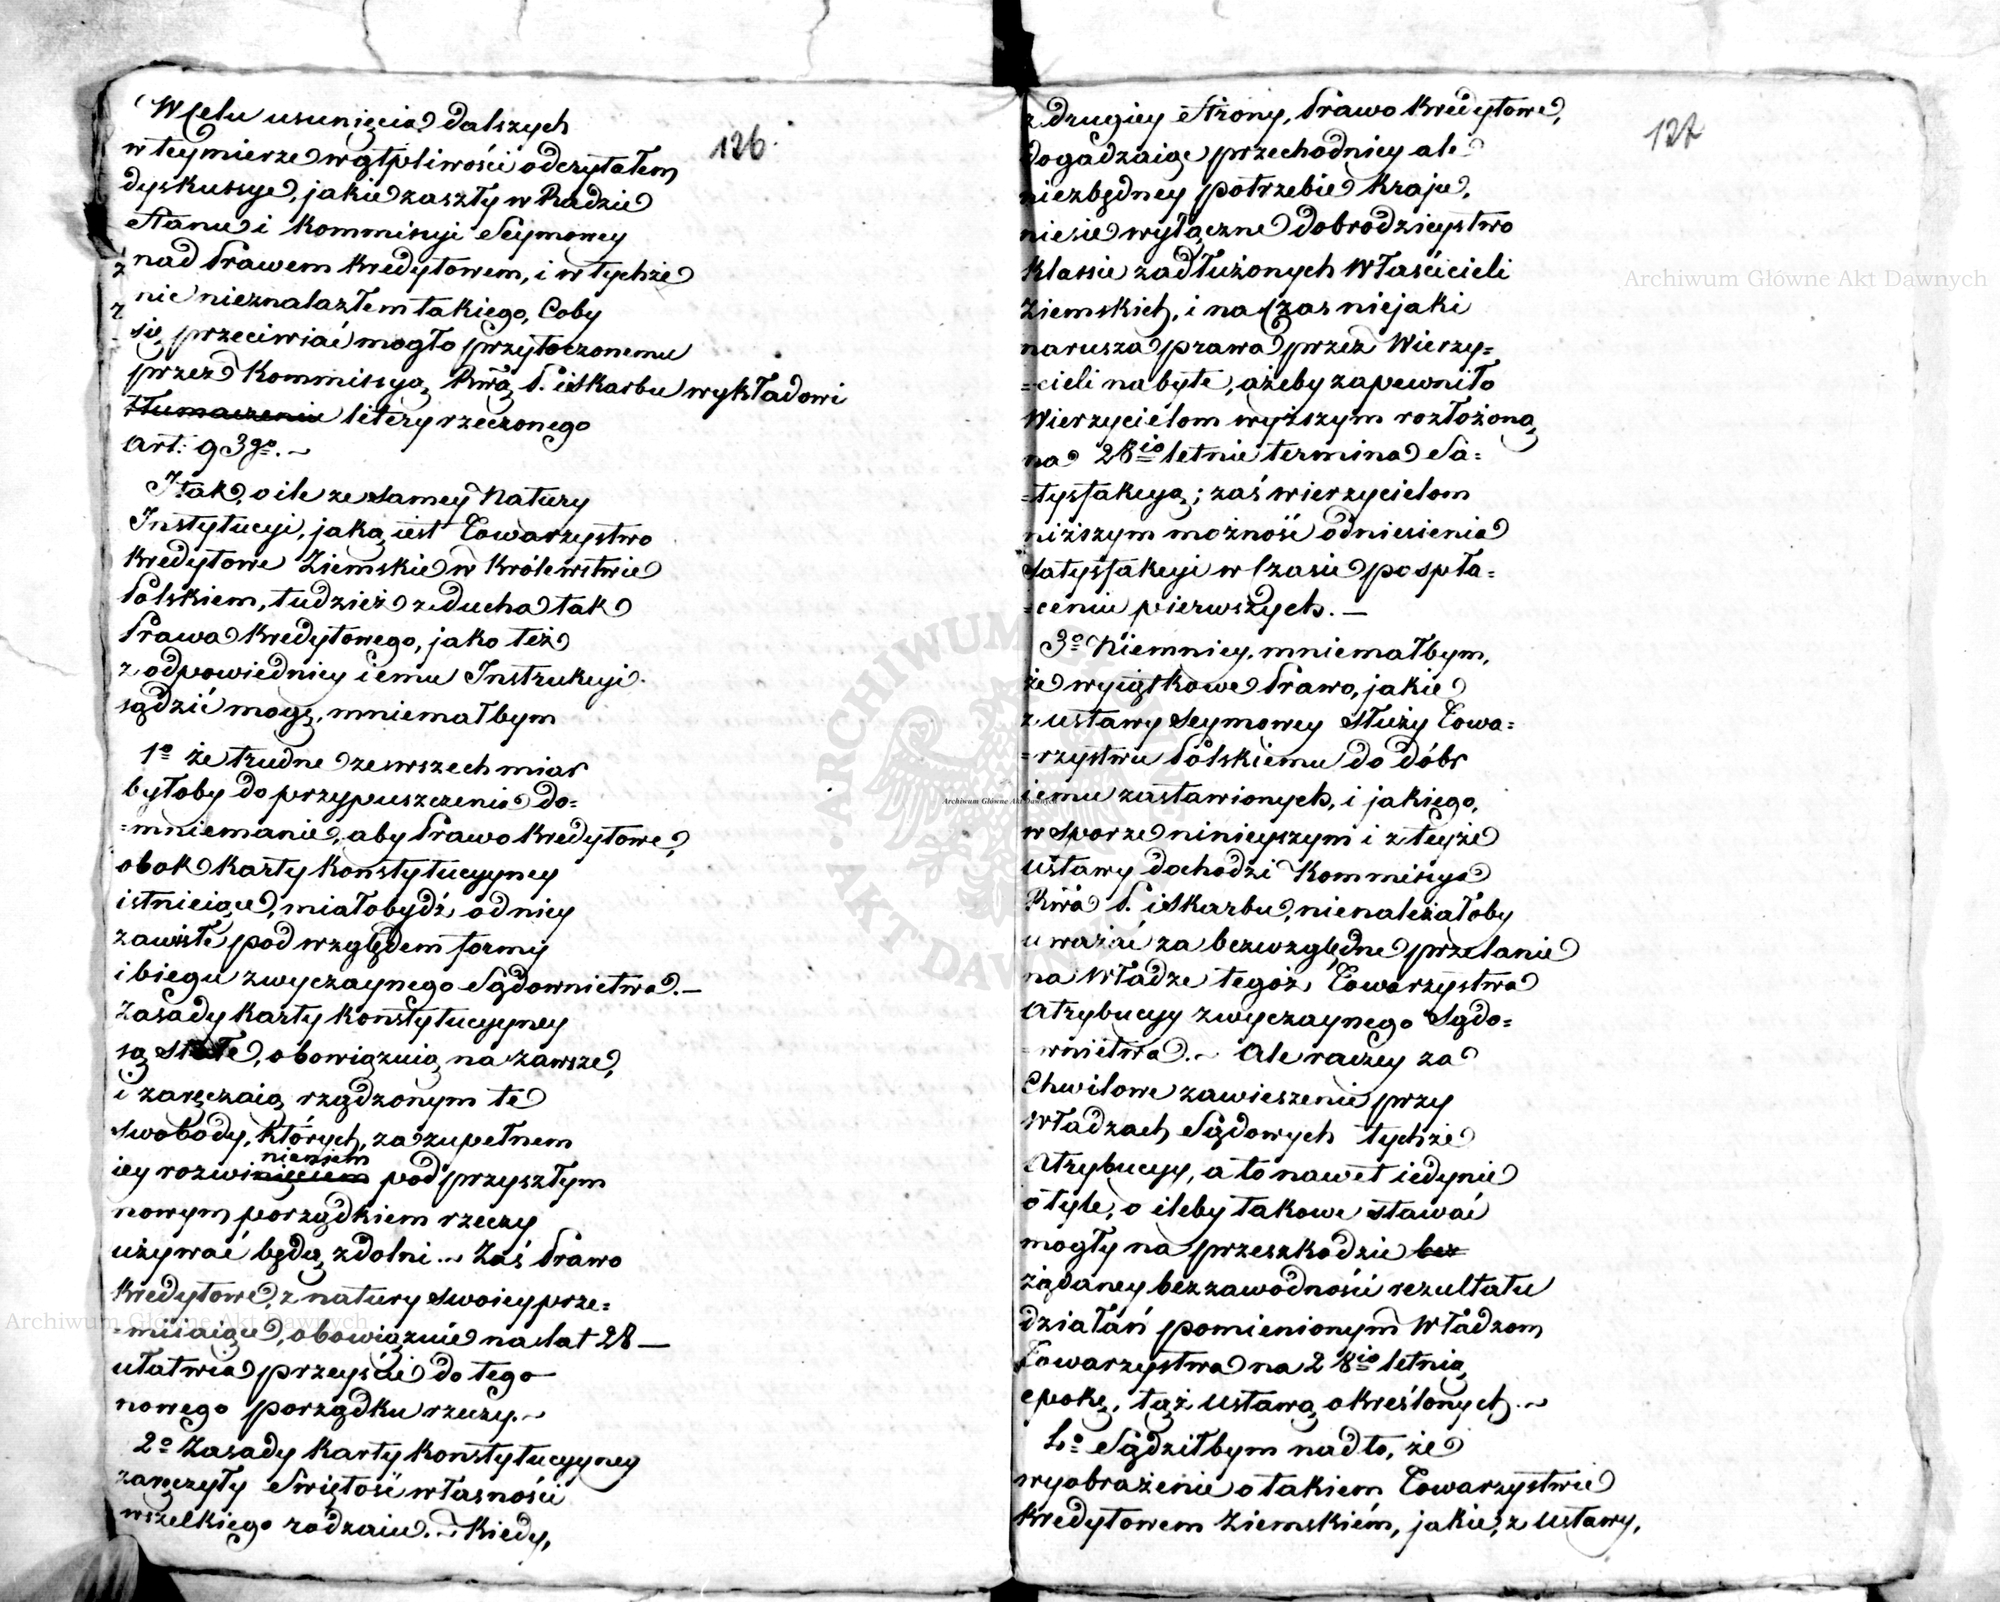 126.
W Celu usunięcia dalszych
w tey mierze wątpliwości odczytałem
dyskussye, jakie zaszły w Radzie
Stanu i Kommissyi Seymowey
nad Prawem Kredytowem, i w tychże
nic nieznalazłem takiego, Coby
się przeciwiać mogło przytoczonemu
przez Kommissyą Rwą P. i Skarbu wykładowi
tłumaczeniu litery rzeczonego
Art: 93go.~
I tak, o ile ze samey Natury
Instytucyi, jaką iest Towarzystwo
Kredytowe Ziemskie w Królewstwie
Polskiem, tudzież z ducha tak
Prawa Kredytowego, jako też
z odpowiedniey iemu Instrukcyi
sądzić mogę, mniemałbym
1o że trudne ze wszech miar
byłoby do przypuszczenia do=
=mniemanie, aby Prawo Kredytowe,
obok Karty Konstytucyyney
istnieiące, miało bydź od niey
zawisłe pod względem formy
i biegu zwyczaynego Sądownictwa.—
Zasady Karty Konstytucyyney
są stałe, obowiązuią na zawsze,
i zaręczaią rządzonym te
swobody, których, za zupełnem
nieniem
iey rozwinięciem pod przyszłym
nowym porządkiem rzeczy
używać będą zdolni.~ Zaś Prawo
Kredytowe, z natury swoiey prze=
=miiaiące, obowiązuie na lat 28—
ułatwia przeyście do tego
nowego porządku rzeczy.~
2o Zasady Karty Konstytucyyney
zaręczyły Świętość własności
wszelkiego rodzaiu.~ Kiedy,
127
z drugiey Strony, Prawo Kredytowe,
dogadzaiąc przechodniey ale
niezbędney potrzebie Kraju,
niesie wyłączne dobrodzieystwo
Klassie zadłużonych Właścicieli
Ziemskich, i na Czas niejaki
narusza prawa przez Wierzy=
=cieli nabyte, ażeby zapewniło
Wierzycielom wyższym rozłożoną
na 28io letnie termina Sa=
=tysfakcyą; zaś wierzycielom
niższym możność odniesienia
satysfakcyi w Czasie po spła=
=ceniu pierwszych.—
3o Niemniey, mniemałbym,
że wyiątkowe Prawo, jakie
z ustawy Seymowey służy Towa=
=rzystwu Polskiemu do dóbr
iemu zastawionych, i jakiego,
w Sporze ninieyszym i z teyże
ustawy dochodzi Kommissya
Rwa P. i Skarbu, nienależałoby
uważać za bezwzględne przelanie
na Władze tegoż Towarzystwa
Atrybucyy zwyczaynego Sądo=
=wnictwa.~ Ale raczey za
Chwilowe zawieszenie przy
Władzach Sądowych tychże
Atrybucyy, a to nawet iedynie
o tyle, o ileby takowe stawać
mogły na przeszkodzie bez
żądaney bezzawodności rezultatu
działań pomienionym Władzom
Towarzystwa na 28io letnią
epokę, tąż ustawą określonych.~
4o Sądziłbym nadto, że
wyobrażenie o takiem Towarzystwie
Kredytowem Ziemskiém, jakie, z ustawy,
Archiwum Główne Akt Dawnych
Archiwum Główne Akt Dawnych
Archiwum Główne Akt Dawnych